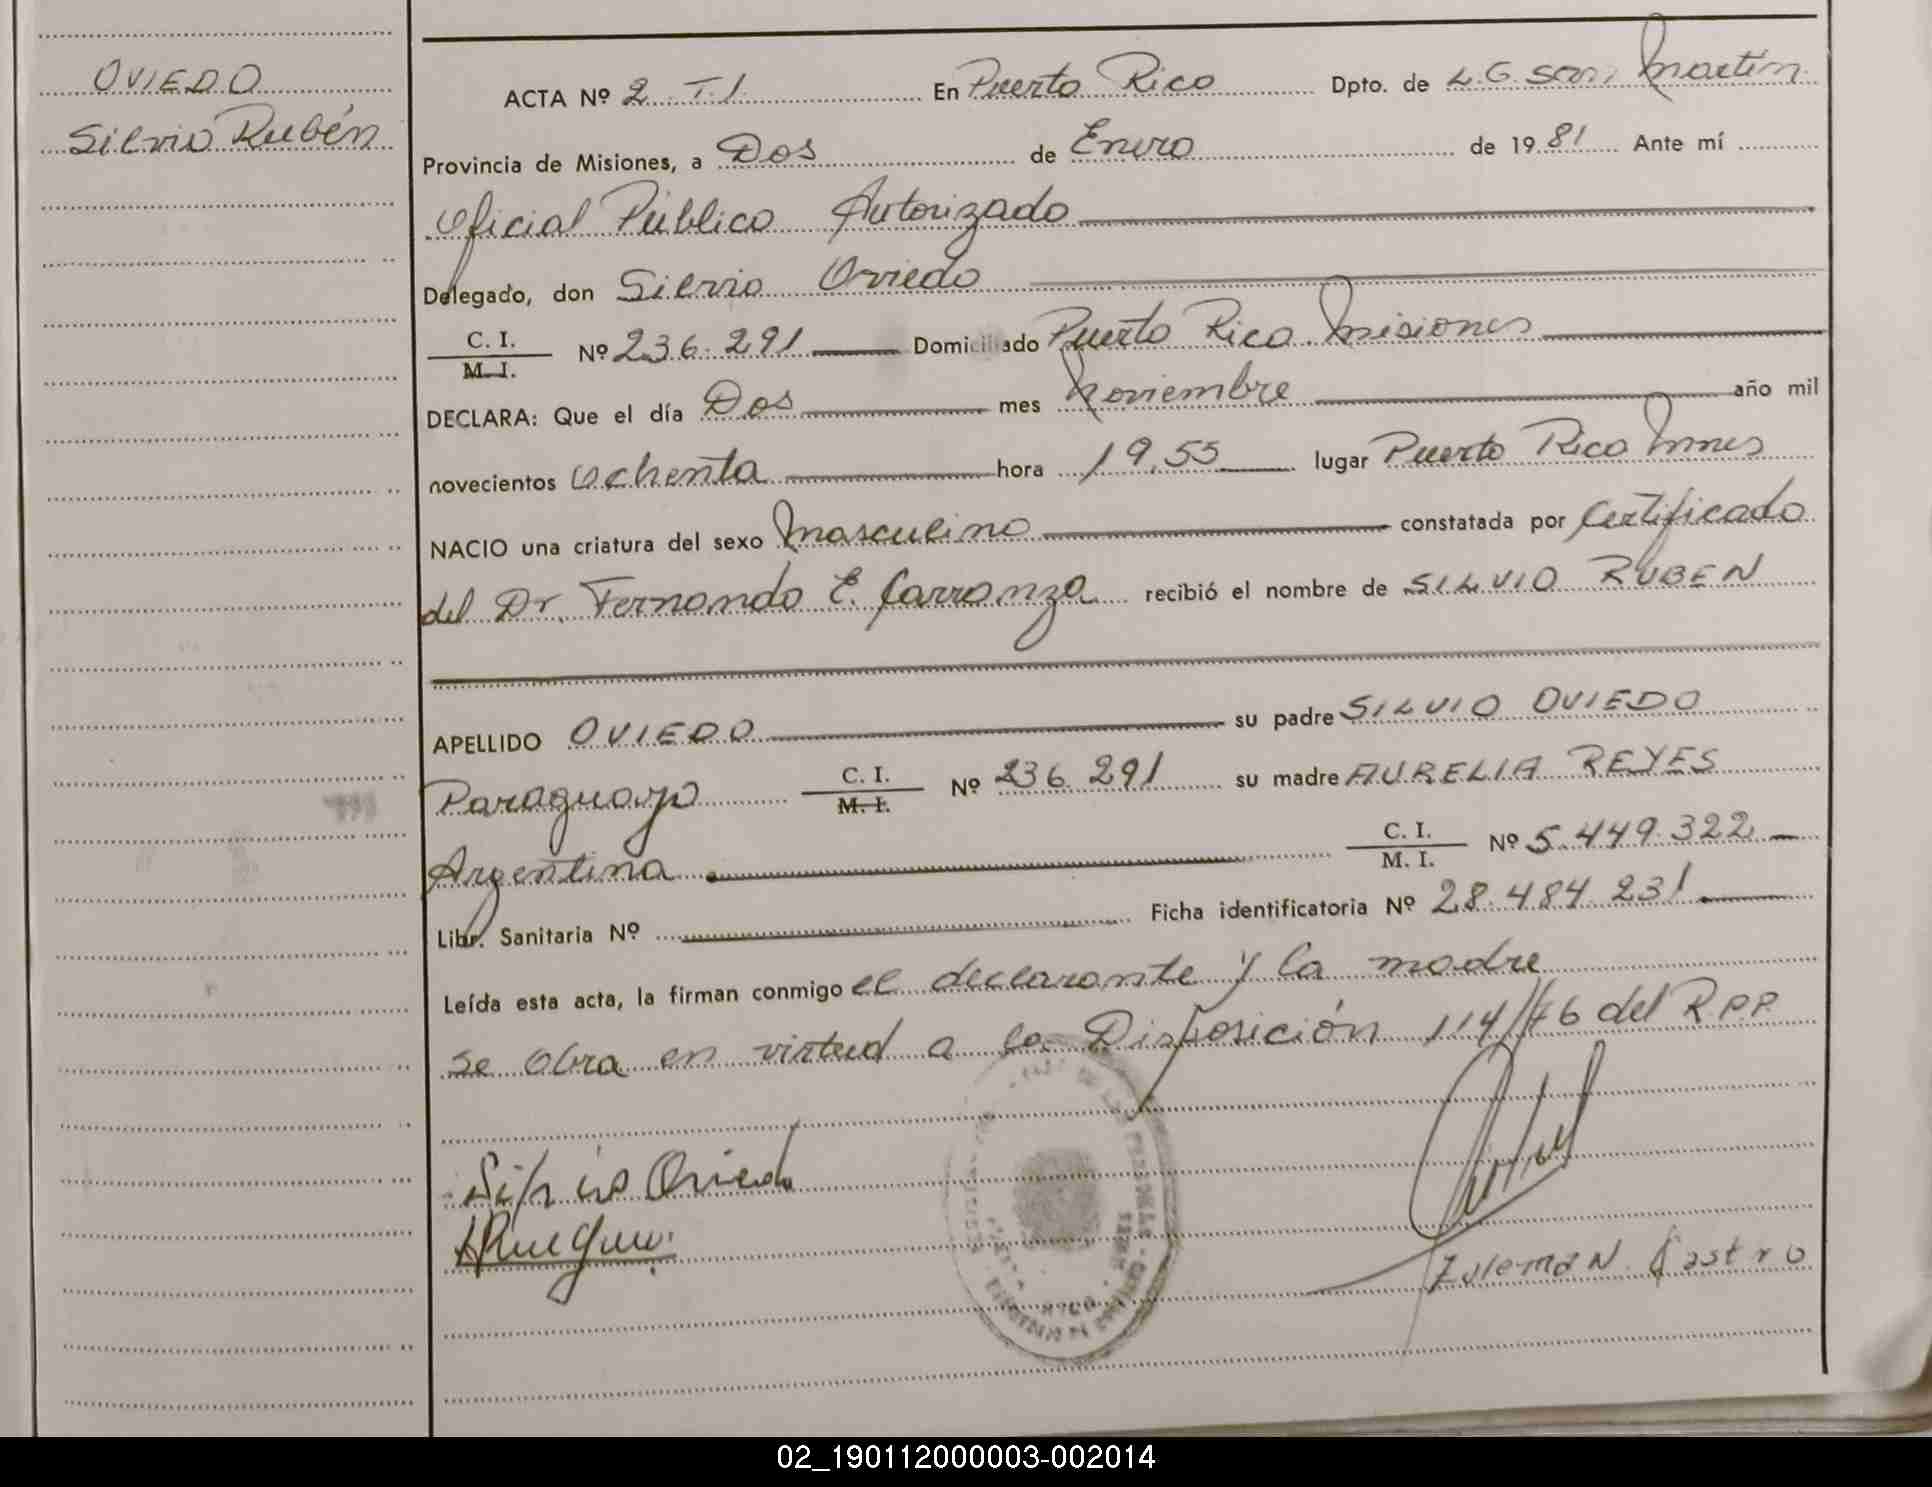 OVIEDO
Silvio Rubén
ACTA Nº 2 T.1. En Puerto Rico Dpto. de L.G. San Martín
Provincia de Misiones, a Dos de Enero de 1981 Ante mí
Oficial Público Autorizado
Delegado, don Silvio Oviedo
C. I.
M. I. Nº 236.291 Domiciliado Puerto Rico Misiones
DECLARA: Que el día Dos mes Noviembre año mil
novecientos Ochenta hora 19,55 lugar Puerto Rico Mnes
NACIO una criatura del sexo Masculino constatada por Certificado
del Dr. Fernando E. Carranza recibió el nombre de SILVIO RUBEN
APELLIDO OVIEDO su padre SILVIO OVIEDO
Paraguayo C. I. M. I. Nº 236.291 su madre AURELIA REYES
Argentina C. I. M. I. Nº 5.449.322
Libr. Sanitaria Nº Ficha identificatoria Nº 28.484.231
Leída esta acta, la firman conmigo el declarante y la madre
se obra en virtud a la Disposición 114/76 del R.P.P.
Silvio Oviedo
Zulema N. Castro
02_190112000003-002014